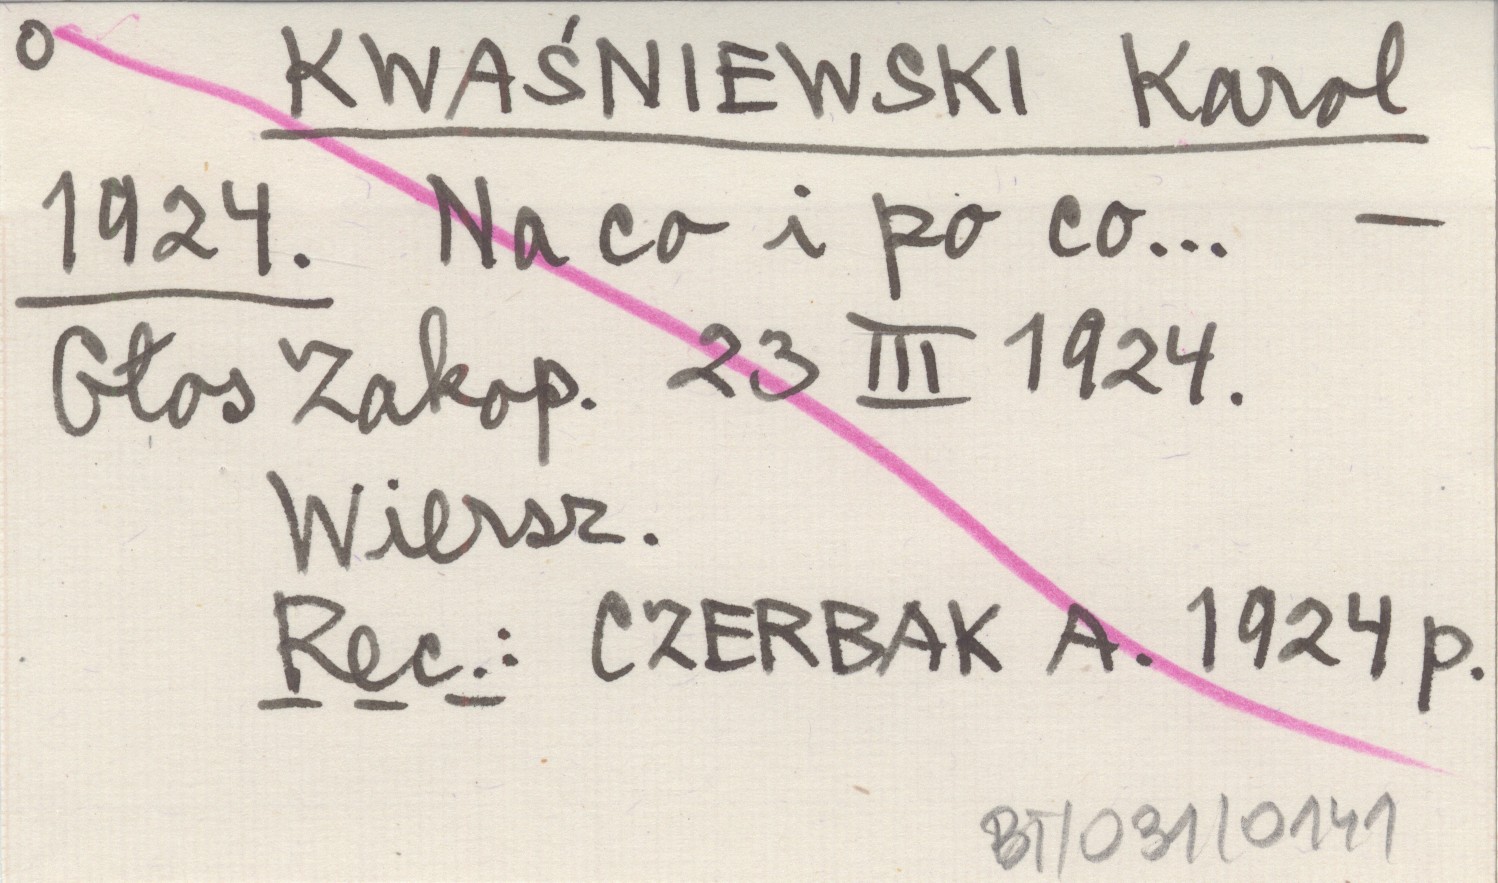 o KWAŚNIEWSKI Karol
1924. Na co i po co... —
Głos Zakop. 23 III 1924.
Wiersz.
Rec.: CZERBAK A. 1924 p.
BT/031/0141